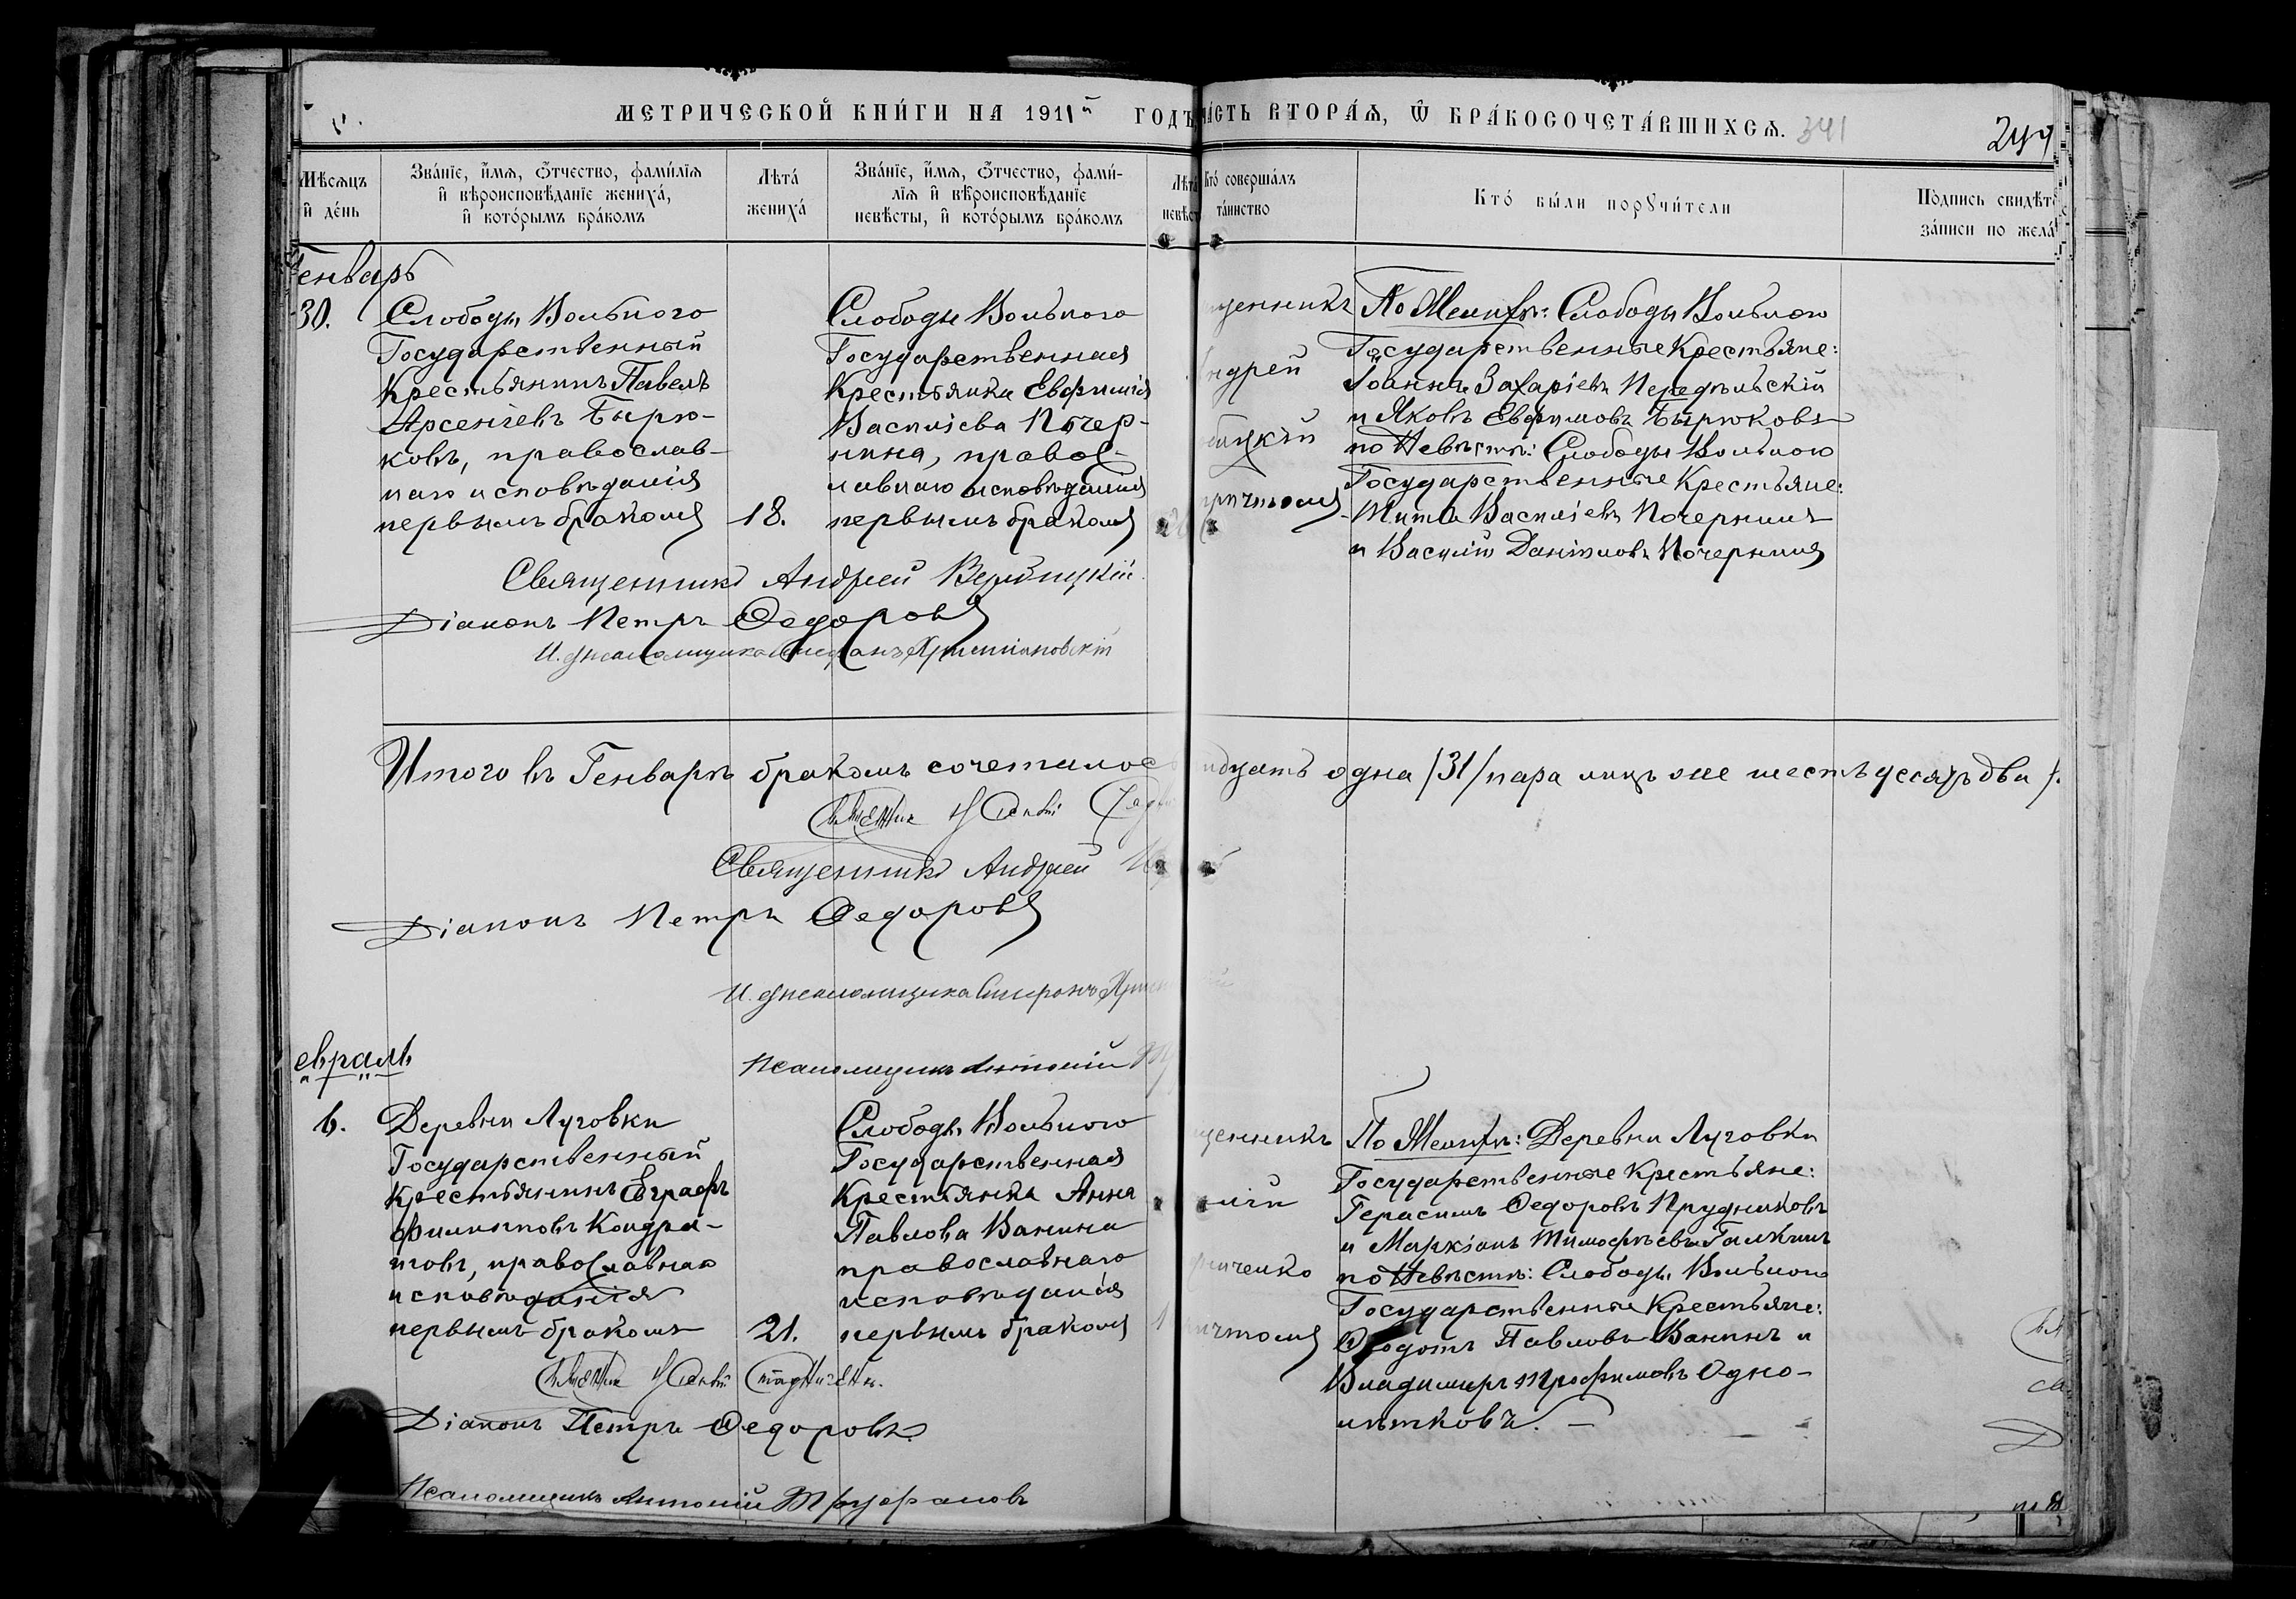 МЕТРИЧЕСКОЙ КНИ́ГИ НА 1911й ГОДЪ
ЧА́СТЬ ВТОРА́Ѧ, Ѿ БРА́КОСОЧЕТА́ВШИХСѦ.
341
Мѣсяцъ и де́нь
Зва́нїе, и҆́мѧ, ѻ҆́тчество, фами́лїѧ и҆ вѣроисповѣ́данїе жениха́, и҆ кото́рымъ бра́комъ
Лѣта́ жениха́
Зва́нїе, и҆́мѧ, ѻ҆́тчество, фами́лїѧ и҆ вѣроисповѣ́данїе невѣ́сты, и҆ кото́рымъ бра́комъ
Лѣта невѣст
Кто́ соверша́лъ та́инство
Кто́ бы́ли порꙋчи́тели
По́дпись свидѣт
за́писи по жела
Генварь
30.
Слободы Вольного
Государственный
Крестьянинъ Павелъ
Арсеніевъ Бырю-
ковъ, православ-
наго исповѣданія
первымъ бракомъ
18.
Слободы Вольного
Государственная
Крестьянка Евфимія
Василіева Почер-
нина, правос-
лавнаго исповѣданія
первымъ бракомъ
щенникъ
ндрей
бицкій
причтомъ
По Женихѣ: Слободы Вольного
Государственные Крестьяне:
Іоаннъ Захаріевъ Передѣльскій
и Яковъ Евфимовъ Бырюковъ
по Невѣстѣ: Слободы Вольного
Государственные Крестьяне:
Титъ Василіевъ Почернинъ
и Василій Даніиловъ Почернинъ
Священникъ Андрей Вербицкій
Діаконъ Петръ Федоровъ
И. д. псаломщика Стефанъ Христіановскій
Итого въ Генварѣ бракомъ сочеталось
идцать одна /31/ пара лицъ оне шестьдесятъ два /.
Священникъ Андрей
Діаконъ Петръ Федоровъ
И. д. псаломщика Стефанъ Христ
Псаломщикъ Антоній
евраль
6.
Деревни Луговки
Государственный
Крестьянинъ Евграфъ
Филипповъ Кондра-
товъ, православнаго
исповѣданія
первымъ бракомъ
21.
Слободы Вольного
Государственная
Крестьянка Анна
Павлова Ванина
православнаго
исповѣданія
первымъ бракомъ
щенникъ
ниченко
ичтомъ
По Женихѣ: Деревни Луговки
Государственные Крестьяне:
Герасимъ Федоровъ Прудниковъ
и Маркіанъ Тимофѣевъ Галкинъ
по Невѣстѣ: Слободы Вольного
Государственные Крестьяне:
Федотъ Павловъ Ванинъ и
Владимиръ Трофимовъ Одно-
лѣтковъ.
Діаконъ Петръ Федоровъ.
Псаломщикъ Антоній Труфановъ